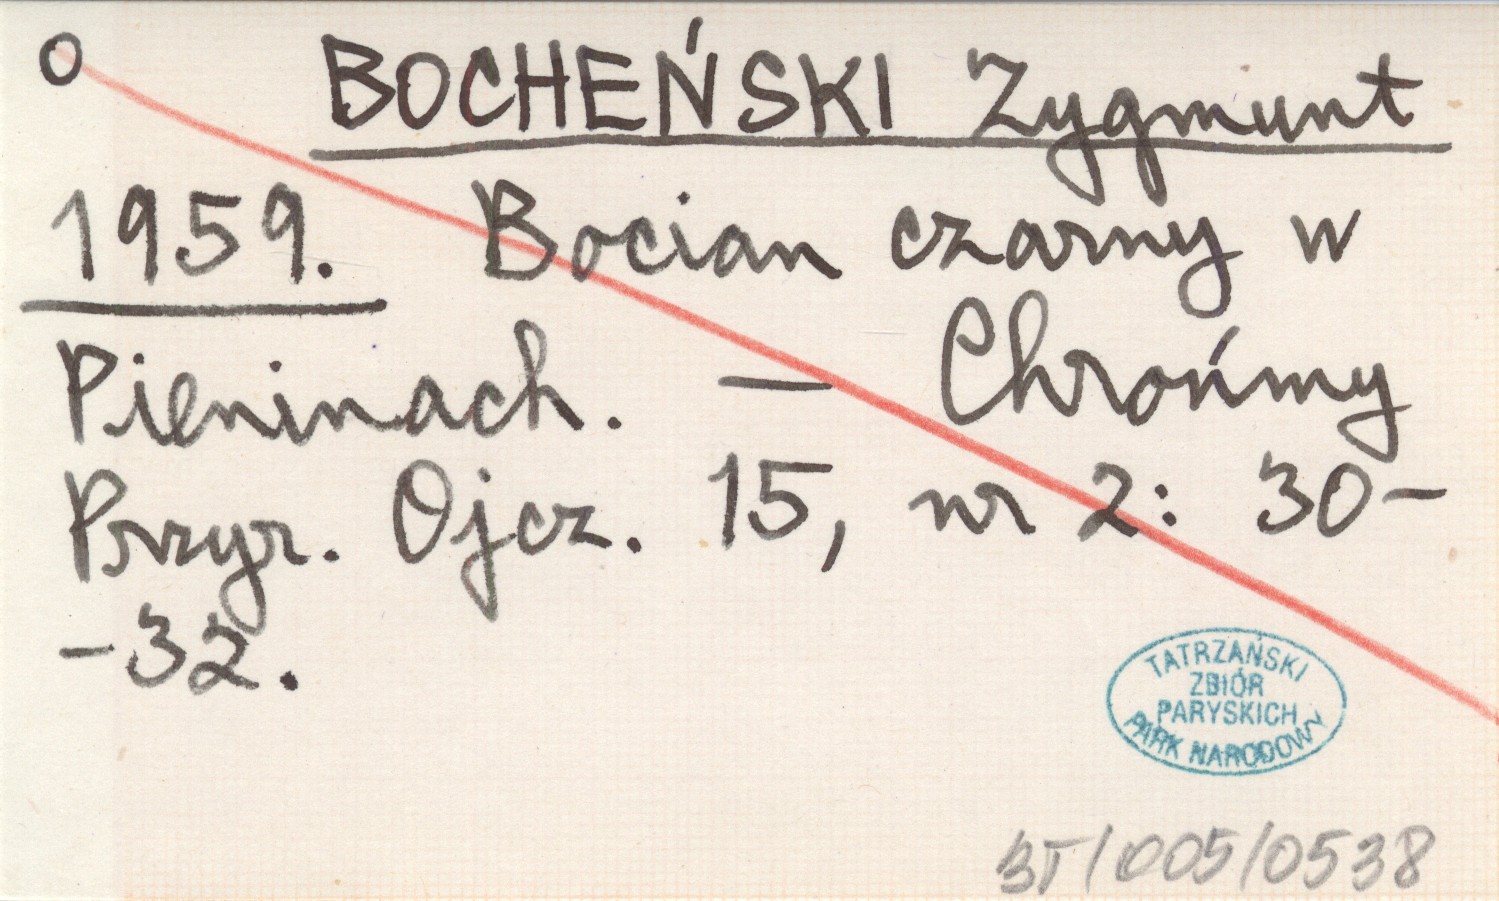 o BOCHEŃSKI Zygmunt
1959. Bocian czarny w
Pieninach. — Chrońmy
Przyr. Ojcz. 15, nr 2: 30-
-32.
TATRZAŃSKI
ZBIÓR
PARYSKICH
PARK NARODOWY
BT/005/0538